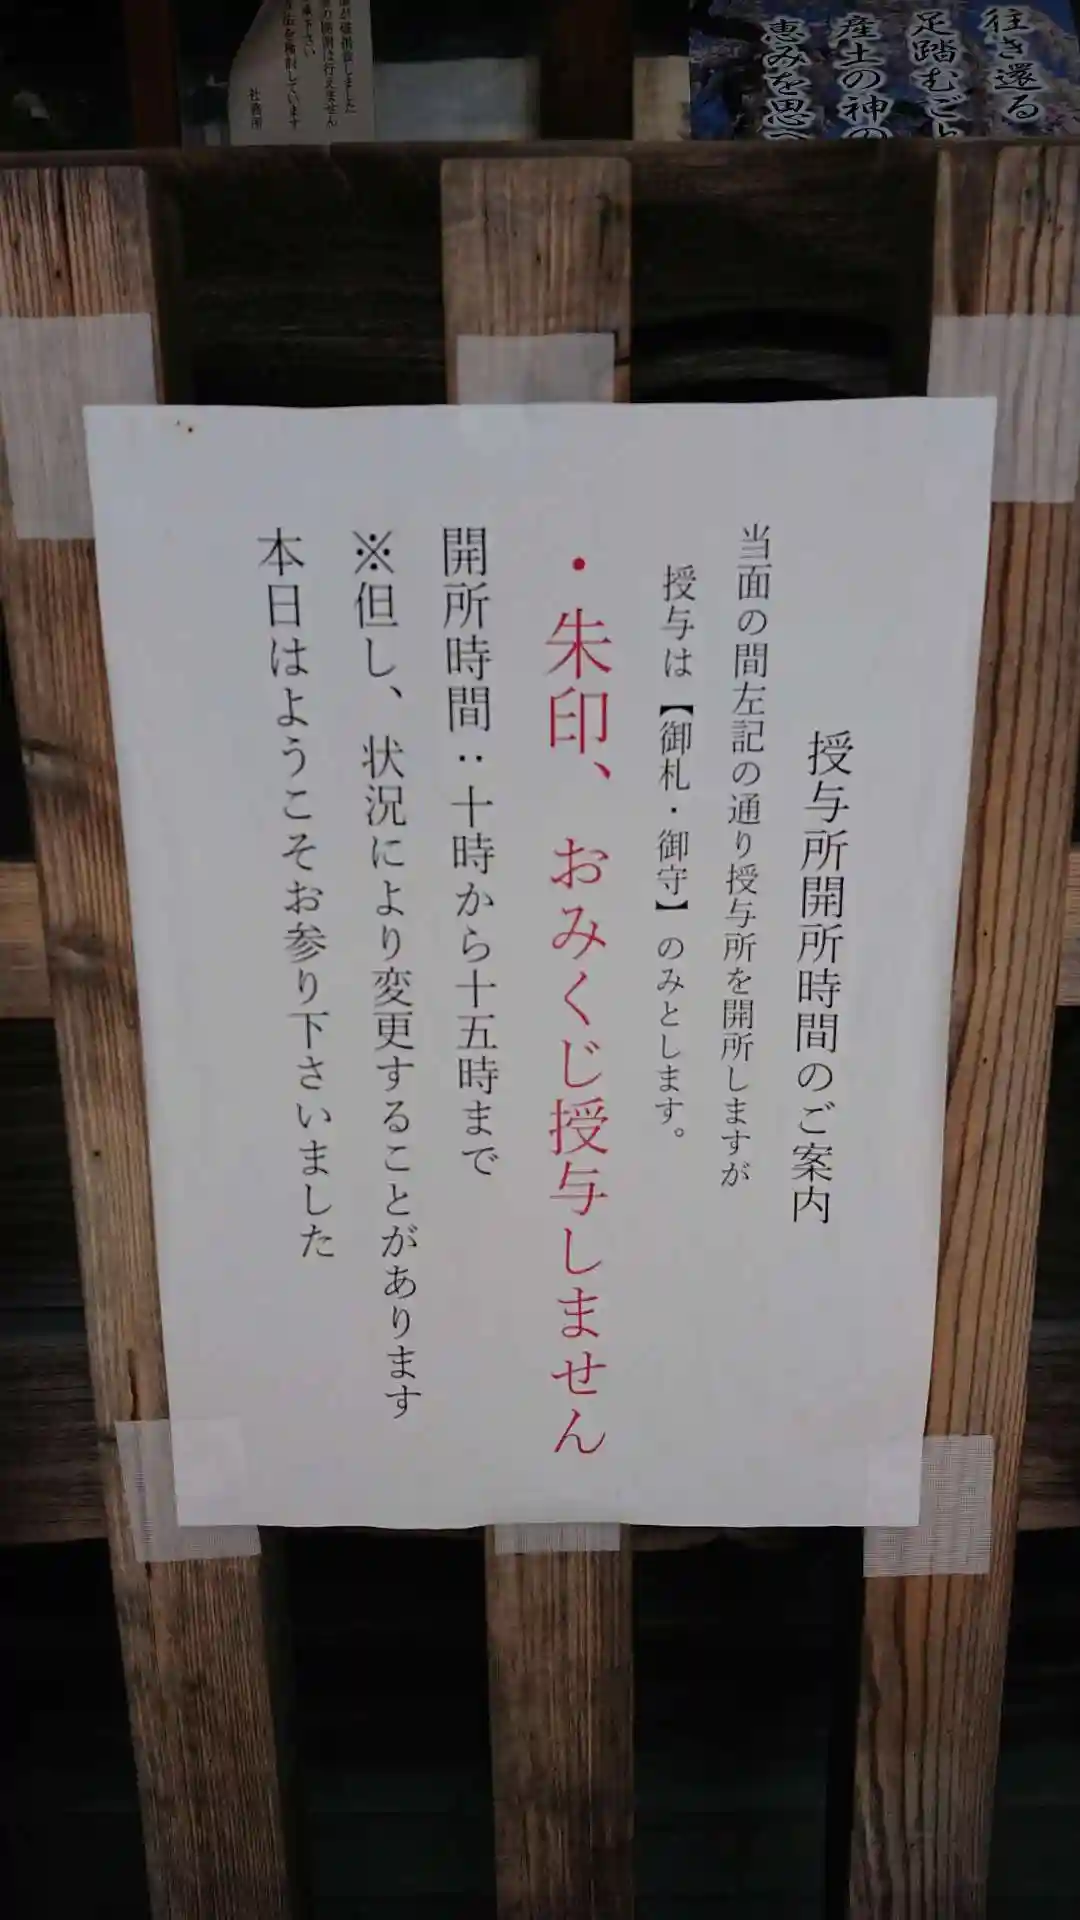 往き還る
足踏むごと
産土の神の
恵みを思へ
の開閉は行えません
社務所
授与所開所時間のご案内
当面の間左記の通り授与所を開所しますが
授与は【御札・御守】のみとします。
・朱印、おみくじ授与しません
開所時間:十時から十五時まで
※但し、状況により変更することがあります
本日はようこそお参り下さいました